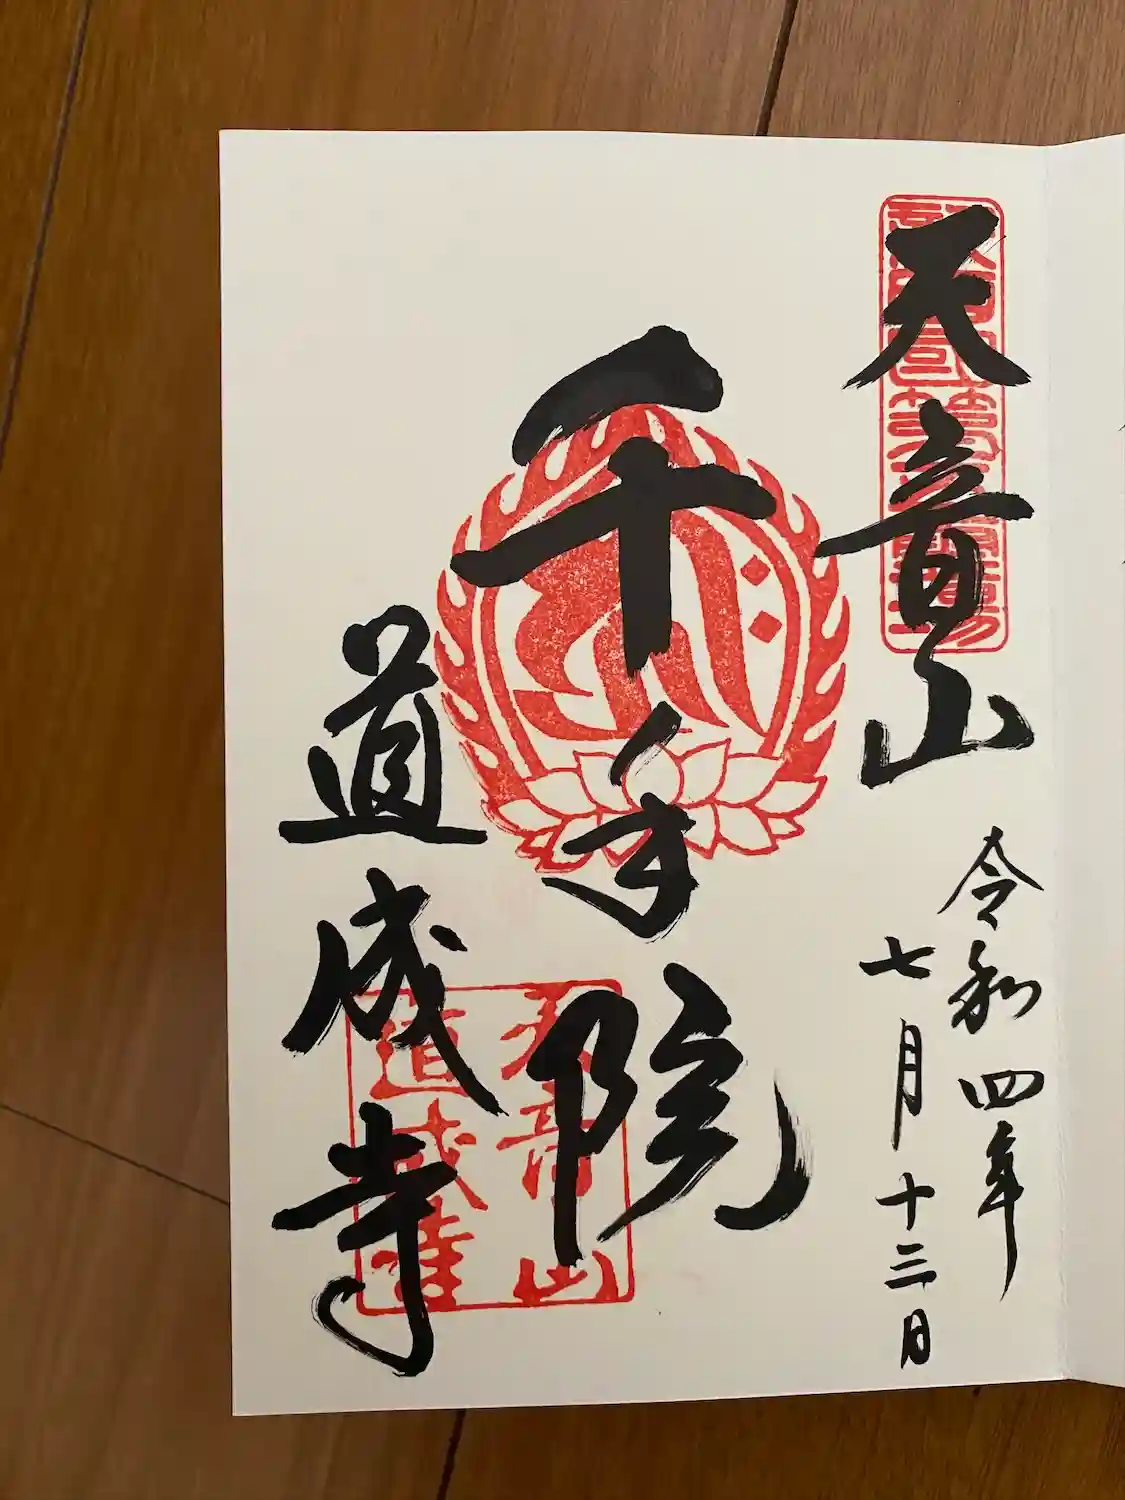 天音山
令和四年
七月十三日
千手院
道成寺
天音山
道成寺